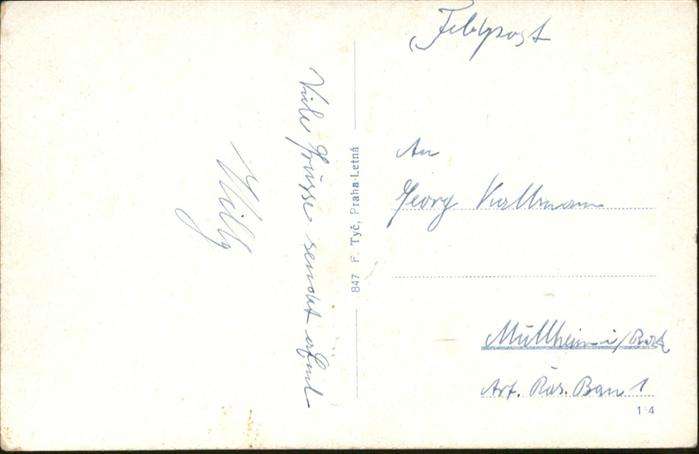 Feldpost
Viele Grüsse sendet
Willy
847 F. Tyč, Praha-Letná
An
Georg Kallmann
Müllheim i/Bad.
Art. Kas. Bau 1
14